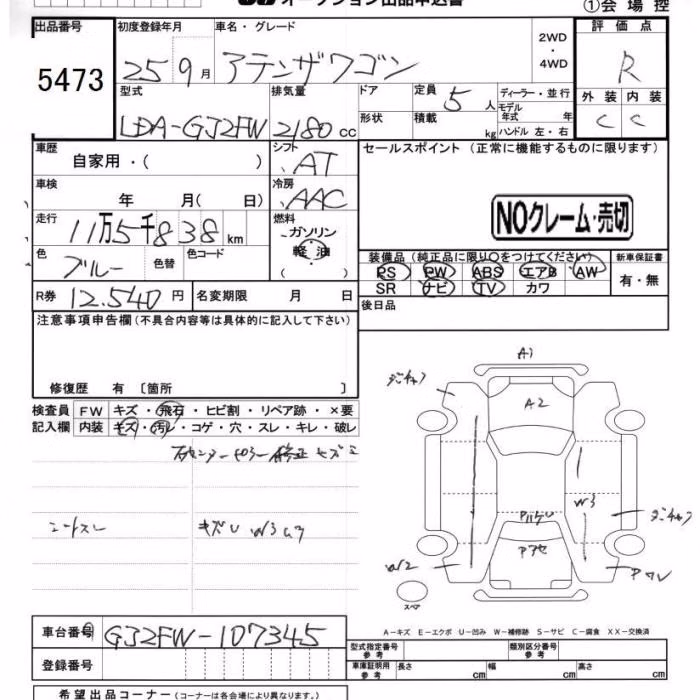 オークション出品申込書
①会場控
出品番号 初度登録年月 車名・グレード 評価点
5473 25 9月 アテンザワゴン 2WD・4WD R
型式 排気量 ドア 定員 5人 ディーラー・並行 外装 内装
LDA-GJ2FW 2180cc 形状 積載 kg モデル年式 年 ハンドル 左・右 C C
車歴 シフト セールスポイント(正常に機能するものに限ります)
自家用・( ) AT
車検 冷房
年 月(日) AAC
NOクレーム・売切
走行 燃料
11万5千838km ガソリン
軽油
色 色替 色コード
ブルー
装備品(純正品に限り○をつけてください) 新車保証書
PS PW ABS エアB AW 有・無
SR ナビ TV カワ
R券 12.540円 名変期限 月 日 後日品
注意事項申告欄(不具合内容等は具体的に記入して下さい)
修復歴 有〔箇所 〕
検査員 FW キズ・飛石・ヒビ割・リペア跡・×要
記入欄 内装 キズ・汚レ・コゲ・穴・スレ・キレ・破レ
A1
A2
W3
W2
スペア
A-キズ E-エクボ U-凹み W-補修跡 S-サビ C-腐食 XX-交換済
車台番号 GJ2FW-107345
登録番号
型式指定番号 参考 類別区分番号 参考
車庫証明用 参考 長さ cm 幅 cm 高さ cm
希望出品コーナー(コーナーは各会場により異なります。)